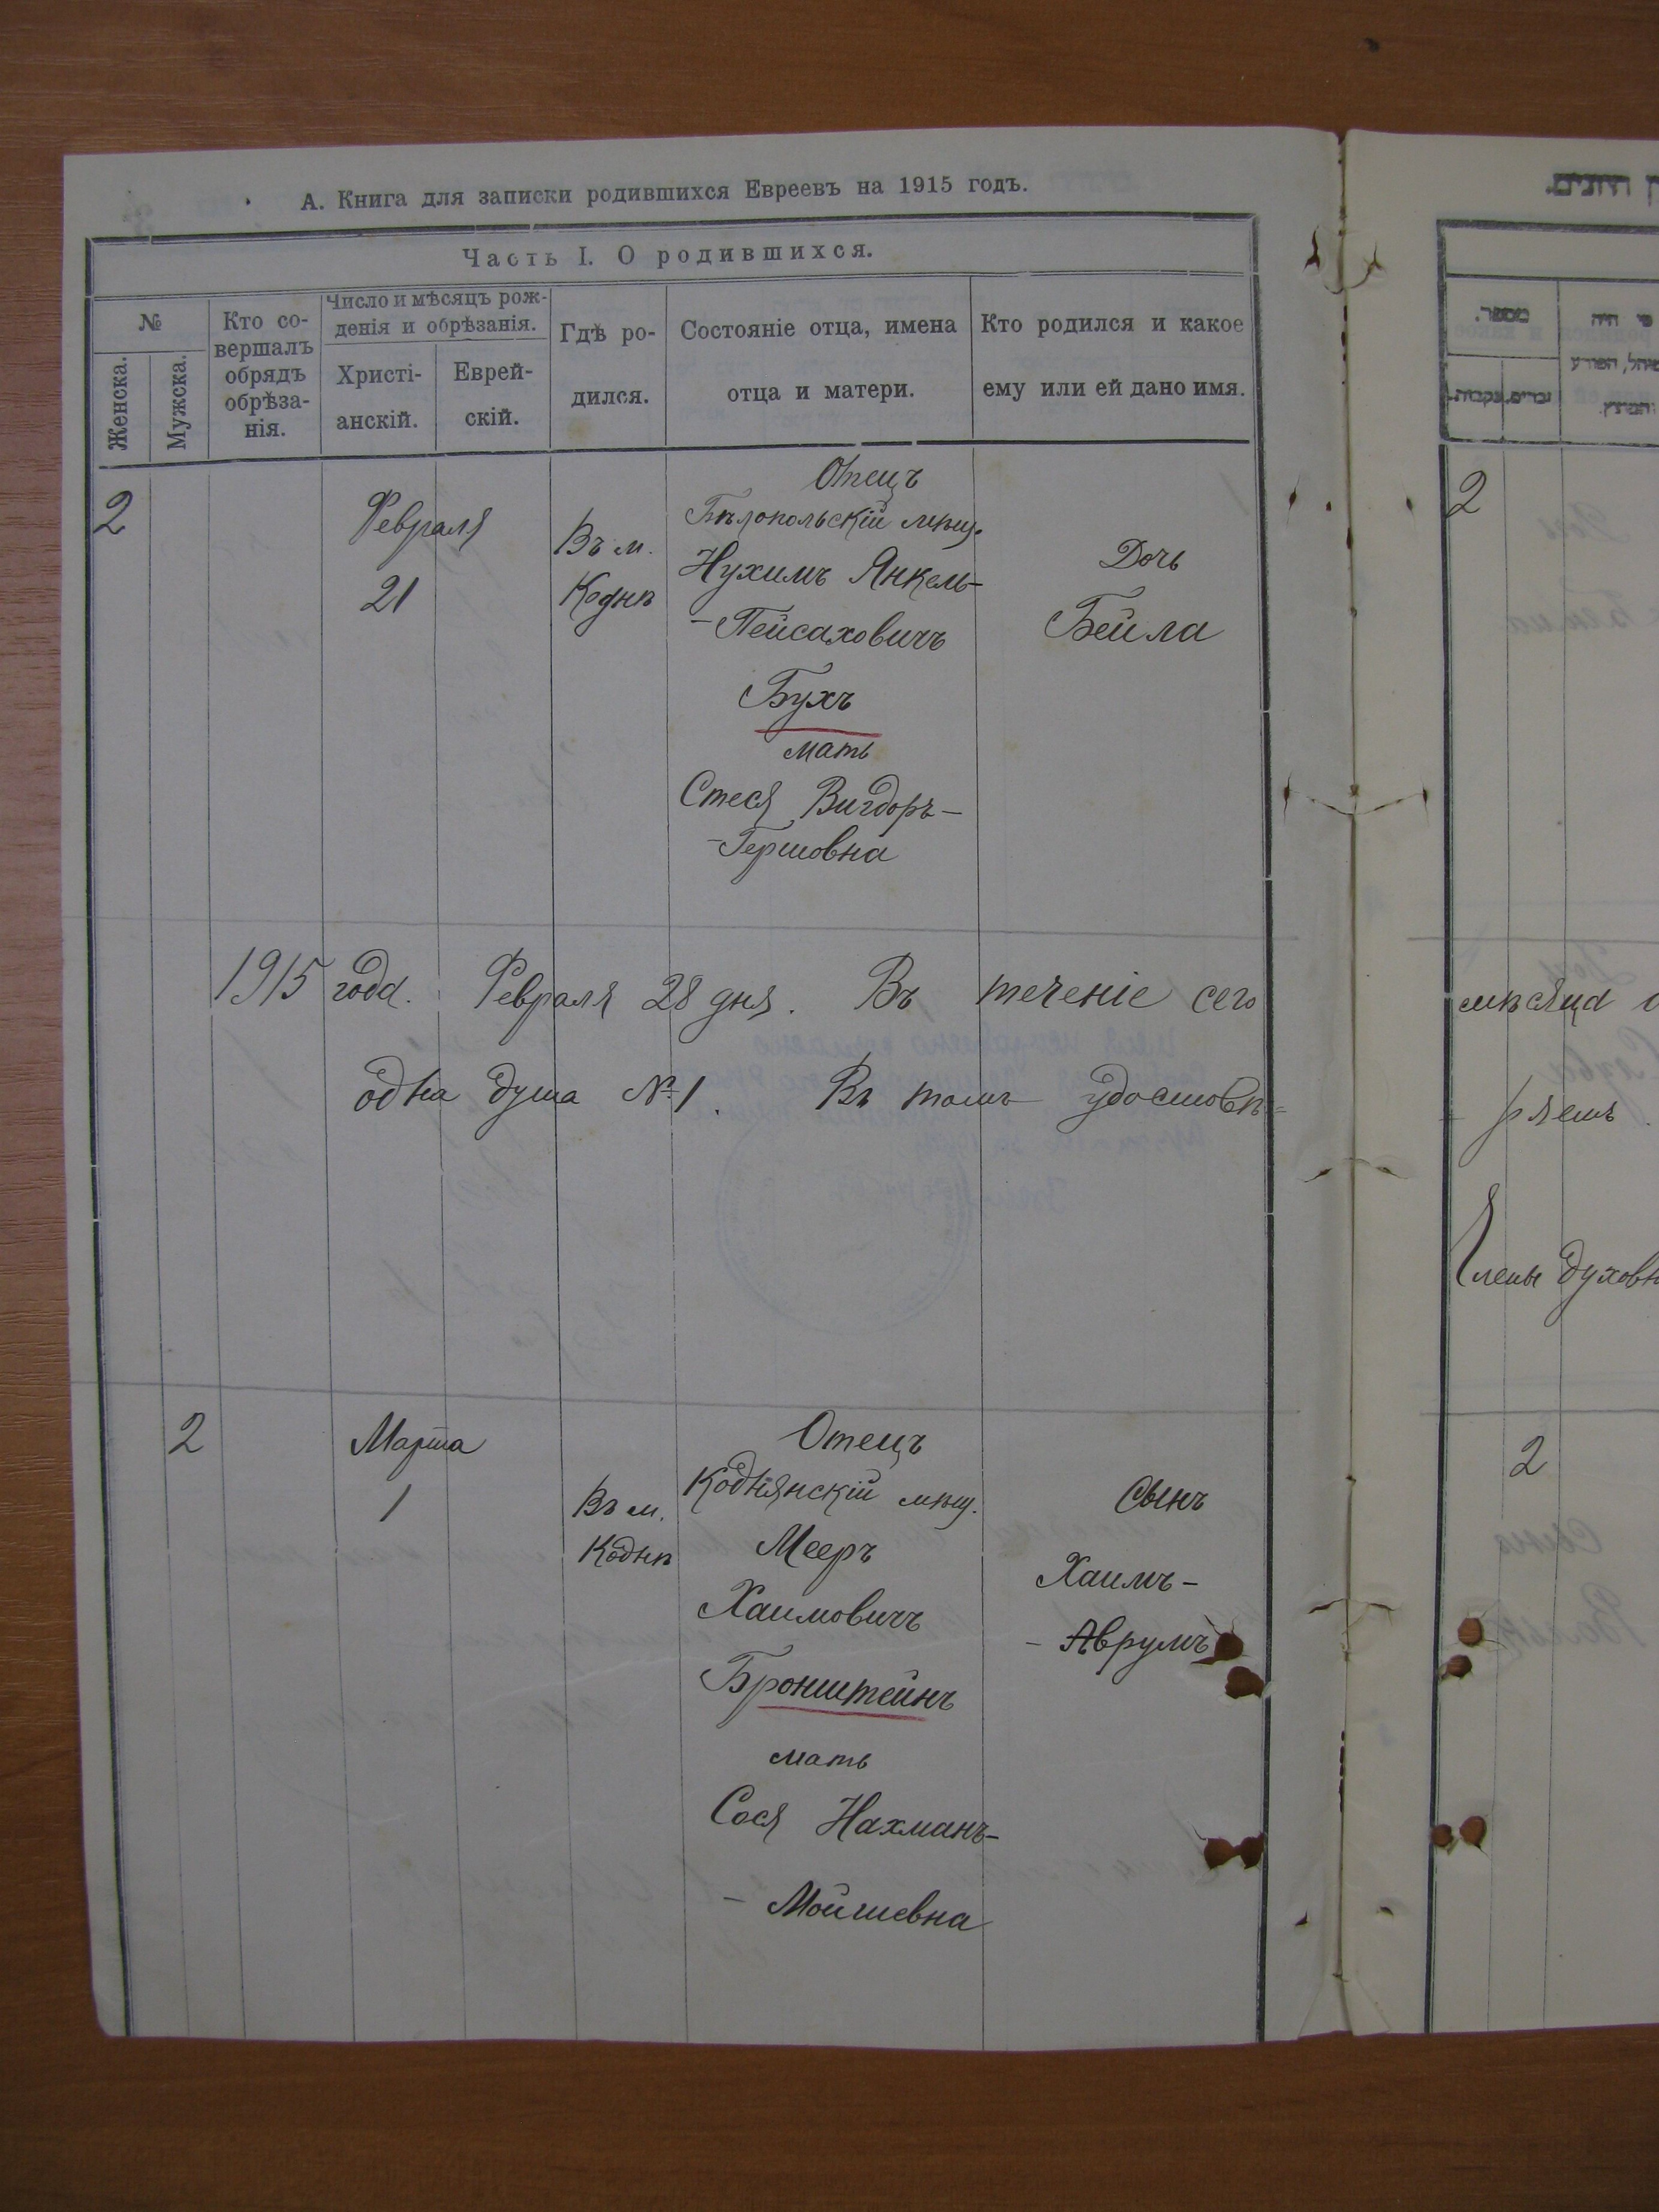 А. Книга для записки родившихся Евреевъ на 1915 годъ.
Часть I. О родившихся.
№
Женска.
Мужска.
Кто со-
вершалъ
обрядъ
обрѣза-
нія.
Число и мѣсяцъ рож-
денія и обрѣзанія.
Христі-
анскій.
Еврей-
скій.
Гдѣ ро-
дился.
Состояніе отца, имена
отца и матери.
Кто родился и какое
ему или ей дано имя.
2
Февраля
21
Въ м.
Коднѣ
Отецъ
Бѣлопольскій мѣщ.
Нухимъ Янкель-
-Пейсаховичъ
Бухъ
мать
Стеся Вигдоръ-
-Гершовна
Дочь
Бейла
1915 года. Февраля 28 дня. Въ теченіе сего
одна душа № 1. Въ томъ удостовѣ=
2
Марта
1
Въ м.
Коднѣ
Отецъ
Коднянскій мѣщ.
Мееръ
Хаимовичъ
Бронштейнъ
мать
Сося Нахманъ-
- Мойшевна
Сынъ
Хаимъ-
- Аврумъ
מספר.
זכרים.
נקבות.
2
мѣсяца
ряемъ.
Члены духовн
2